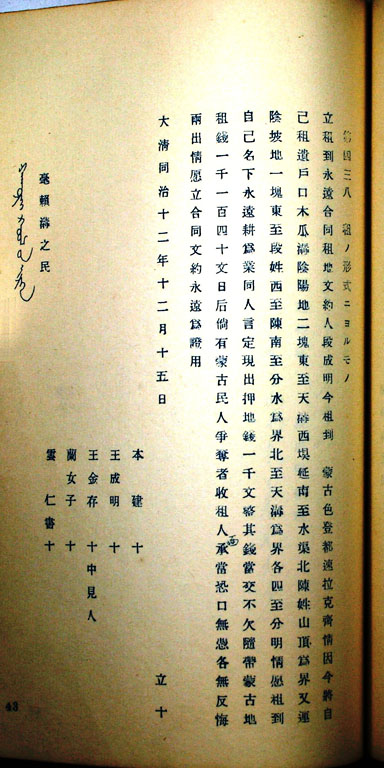 第四三八　租ノ形式ニヨルモノ
立租到永遠合同租地文約人段成明今租到　蒙古色登都速拉克齊情因今將自
己租遺戶口木瓜溝陰陽地二塊東至天溝西堨延南至水渠北陳姓山頂爲界又運
陰坡地一塊東至段姓西至陳南至分水爲界北至天溝爲界各四至分明情愿租到
自己名下永遠耕爲業同人言定現出押地錢一千文整其錢當交不欠隨帶蒙古地
租錢一千一百四十文日后倘有蒙古民人爭奪者收租人承當恐口無憑各無反悔
兩出情愿立合同文約永遠爲證用
大清同治十二年十二月十五日　立十
本建　十
王成明　十
王金存　十中見人
蘭女子　十
雲仁書　十
毫賴溝之民
43